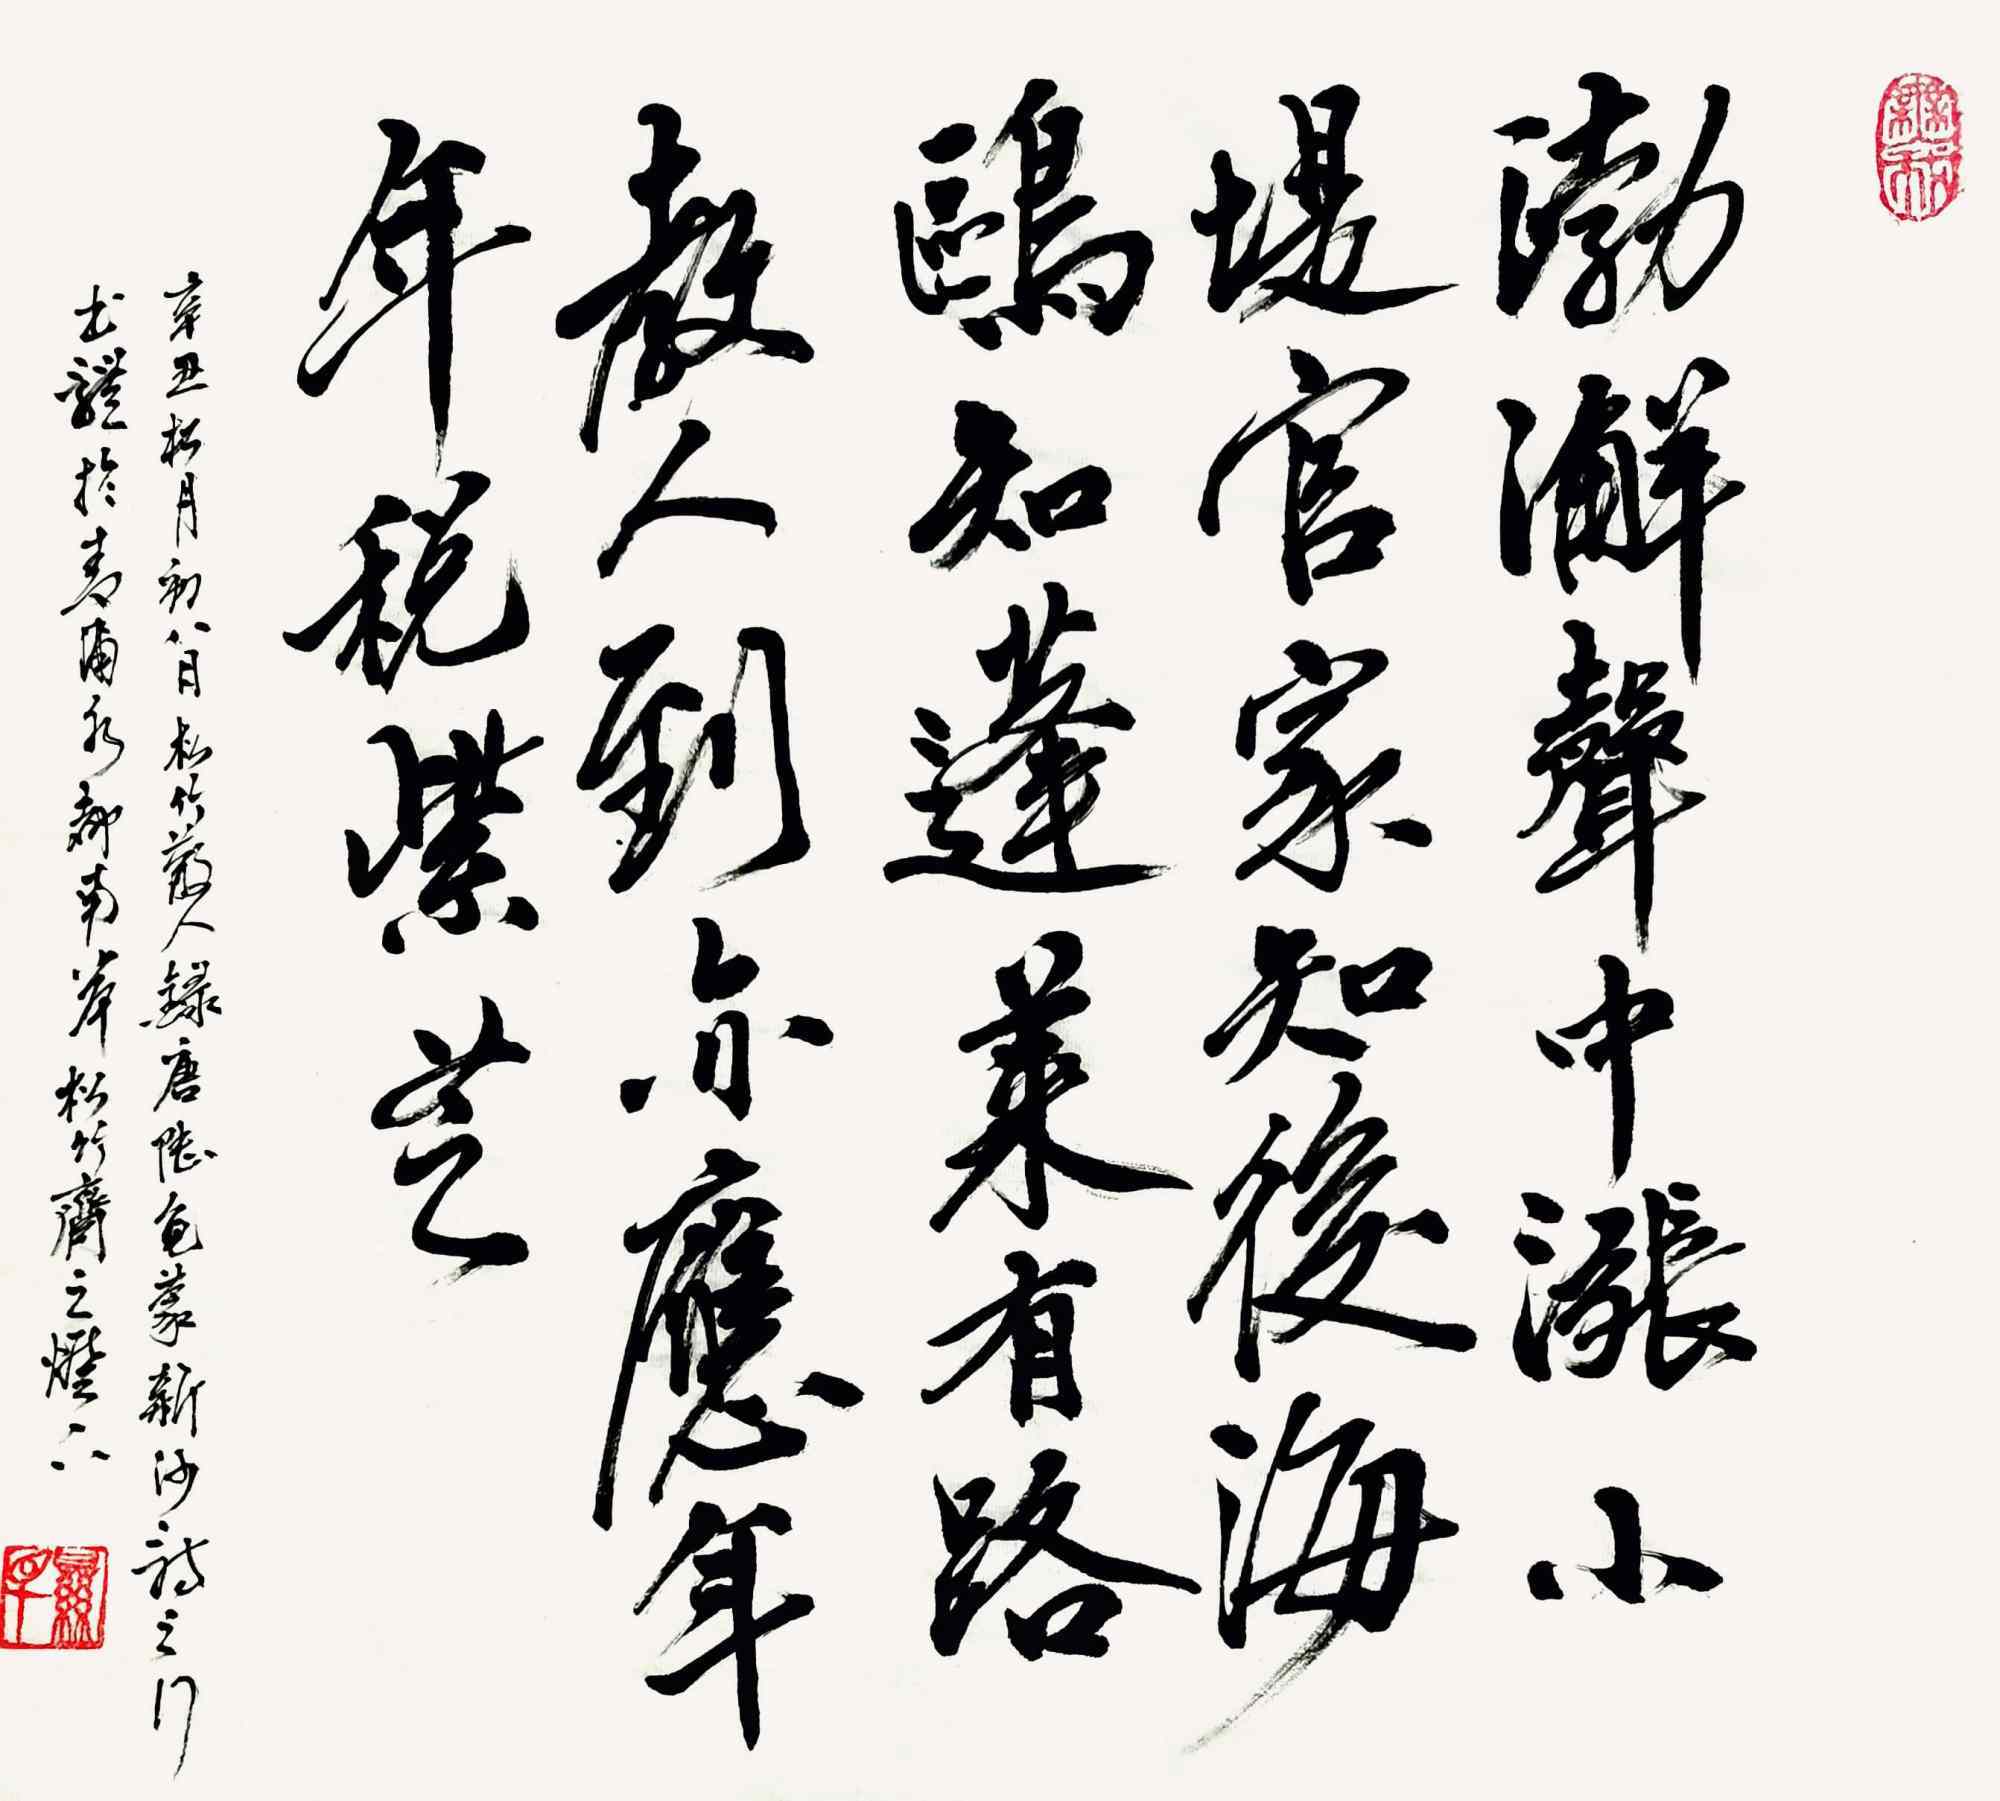 渤澥聲中漲小
堤官家知後海
鷗知蓬萊有路
教人到亦應年
年稅紫芝
辛丑松月初八日松竹散人錄唐陸龜蒙新沙詩之行
書體於青浦水都南岸松竹齋之燈下